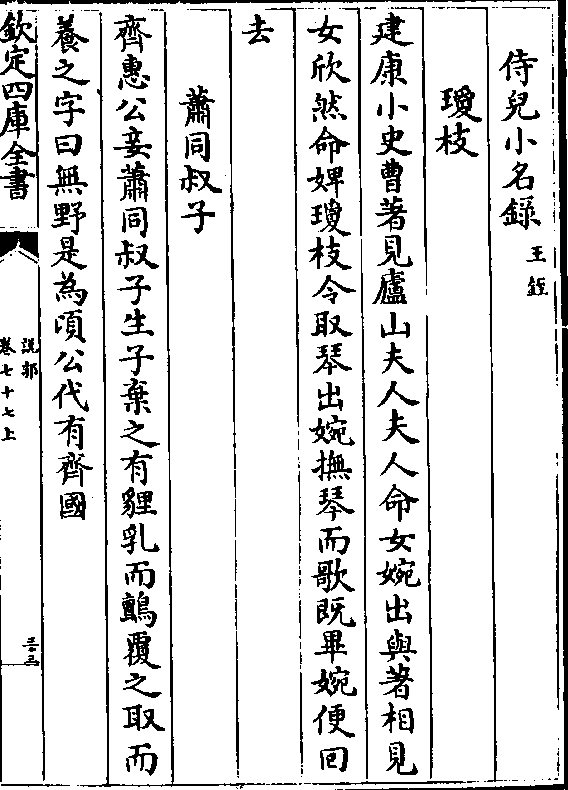 侍兒小名錄 王銍
瓊枝
建康小史曹著見廬山夫人夫人命女婉出與著相見
女欣然命婢瓊枝令取琴出婉撫琴而歌既畢婉便回
去
蕭同叔子
齊惠公妾蕭同叔子生子棄之有貍乳而鸇覆之取而
養之字曰無野是為頃公代有齊國
欽定四庫全書
說郛
卷七十七上